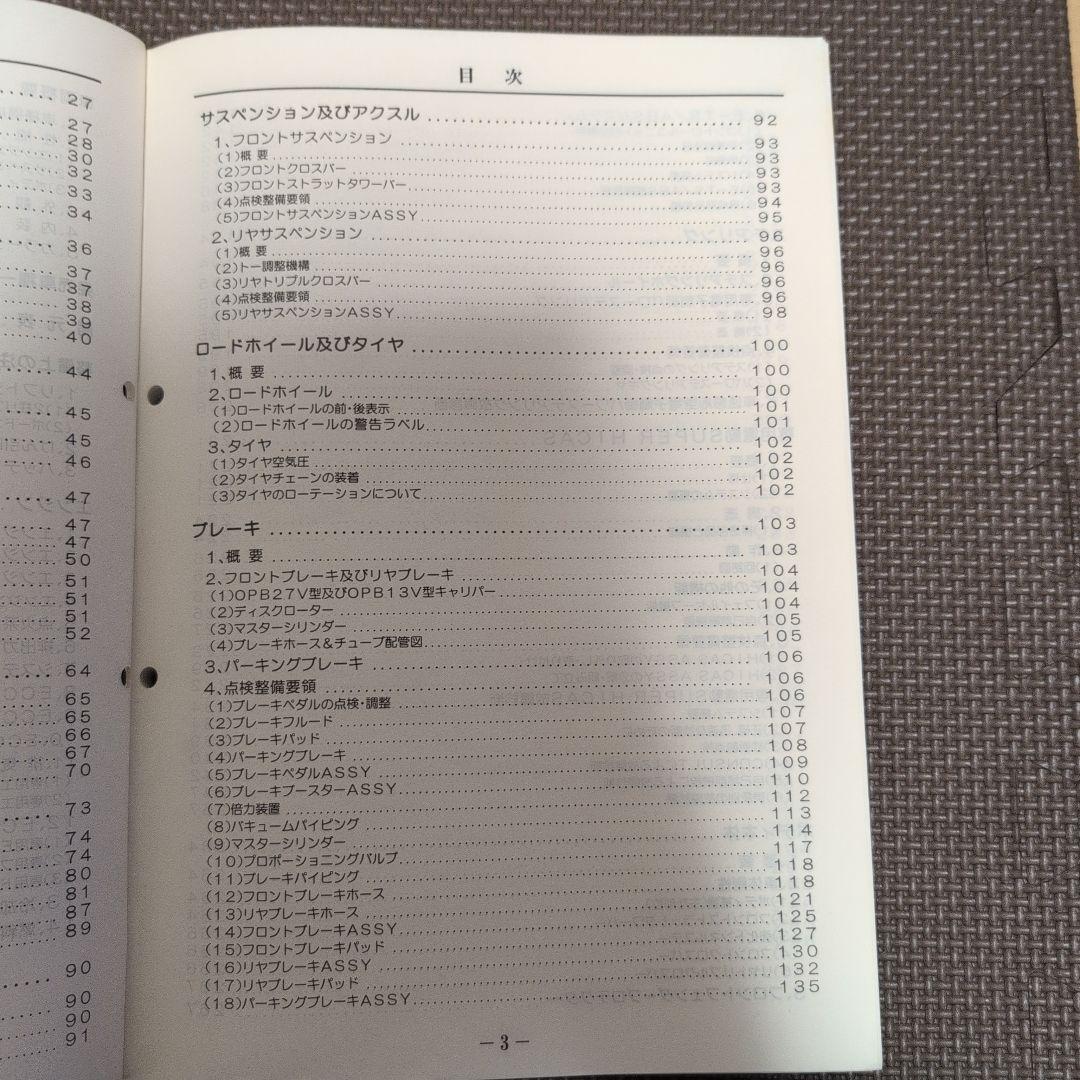 27
27
28
30
32
33
34
36
37
37
38
39
40
44
45
45
46
47
47
47
50
51
51
51
52
64
65
65
66
67
70
73
74
74
80
81
87
89
90
90
90
91
目 次
サスペンション及びアクスル 92
1、フロントサスペンション 93
(1)概 要 93
(2)フロントクロスバー 93
(3)フロントストラットタワーバー 93
(4)点検整備要領 94
(5)フロントサスペンションASSY 95
2、リヤサスペンション 96
(1)概 要 96
(2)トー調整機構 96
(3)リヤトリプルクロスバー 96
(4)点検整備要領 96
(5)リヤサスペンションASSY 98
ロードホイール及びタイヤ 100
1、概 要 100
2、ロードホイール 100
(1)ロードホイールの前・後表示 101
(2)ロードホイールの警告ラベル 101
3、タイヤ 102
(1)タイヤ空気圧 102
(2)タイヤチェーンの装着 102
(3)タイヤのローテーションについて 102
ブレーキ 103
1、概 要 103
2、フロントブレーキ及びリヤブレーキ 104
(1)OPB27V型及びOPB13V型キャリパー 104
(2)ディスクローター 104
(3)マスターシリンダー 105
(4)ブレーキホース＆チューブ配管図 105
3、パーキングブレーキ 106
4、点検整備要領 106
(1)ブレーキペダルの点検・調整 106
(2)ブレーキフルード 107
(3)ブレーキパッド 107
(4)パーキングブレーキ 108
(5)ブレーキペダルASSY 109
(6)ブレーキブースターASSY 110
(7)倍力装置 112
(8)バキュームパイピング 113
(9)マスターシリンダー 114
(10)プロポーショニングバルブ 117
(11)ブレーキパイピング 118
(12)フロントブレーキホース 118
(13)リヤブレーキホース 121
(14)フロントブレーキASSY 125
(15)フロントブレーキパッド 127
(16)リヤブレーキASSY 130
(17)リヤブレーキパッド 132
(18)パーキングブレーキASSY 135
－3－